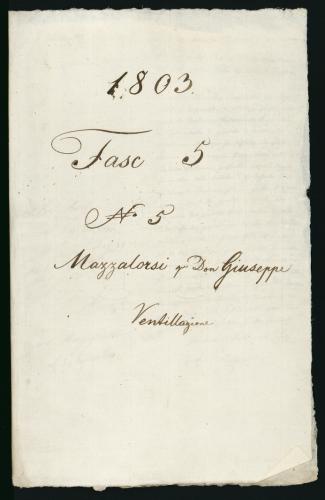 1803.
Fasc 5
N.o 5
Mazzalorsi q Don Giuseppe
Ventillazione